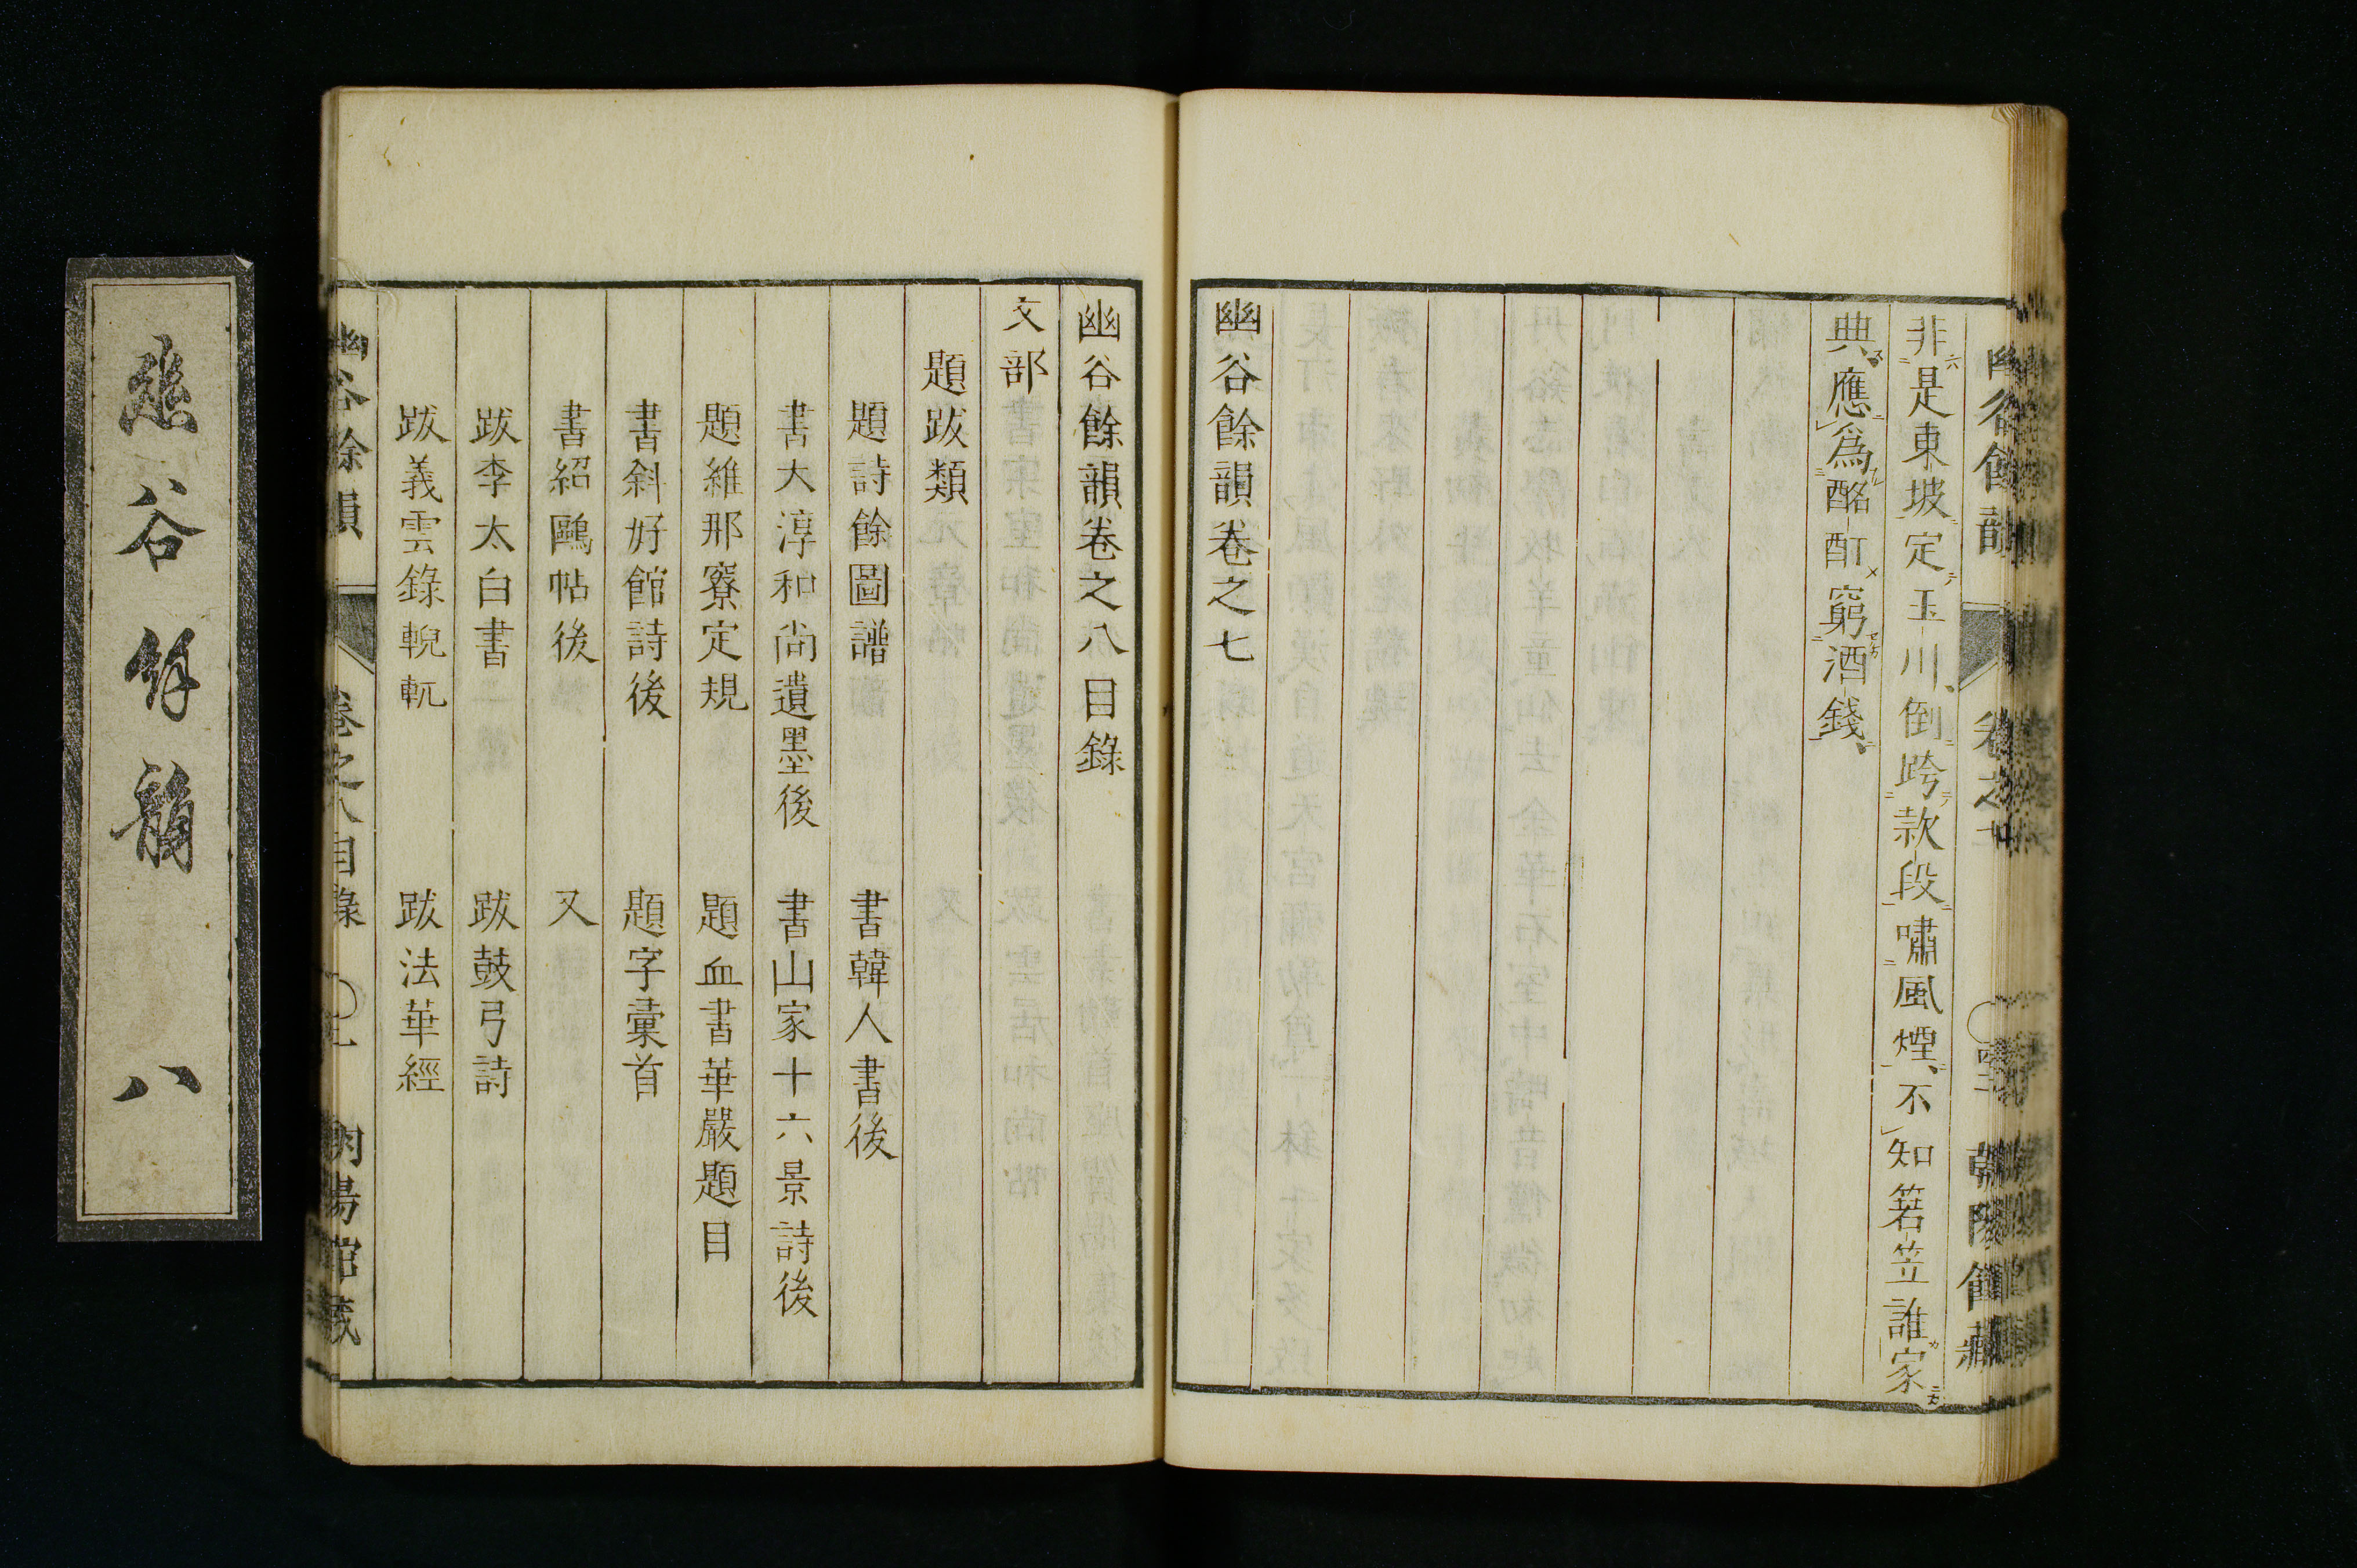 非是東坡定玉川倒跨款段嘯風煙不知箬笠誰家
典應爲酩酊窮酒錢
幽谷餘韻卷之七
幽谷餘韻卷之八目錄
文部
題跋類
題詩餘圖譜 書韓人書後
書大淳和尚遺墨後 書山家十六景詩後
題維那寮定規 題血書華嚴題目
書斜好館詩後 題字彙首
書紹鷗帖後 又
跋李太白書 跋鼓弓詩
跋義雲錄輗軏 跋法華經
幽谷餘韻 卷之八目錄
幽谷餘韻 八